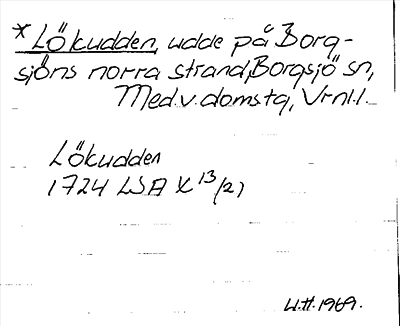 *Lökudden, udde på Borg-
sjöns norra strand, Borgsjö sn,
Med.v.domstg, Vrnl.l.
Lökudden
1724 LSA X 13/21
U.H. 1969.